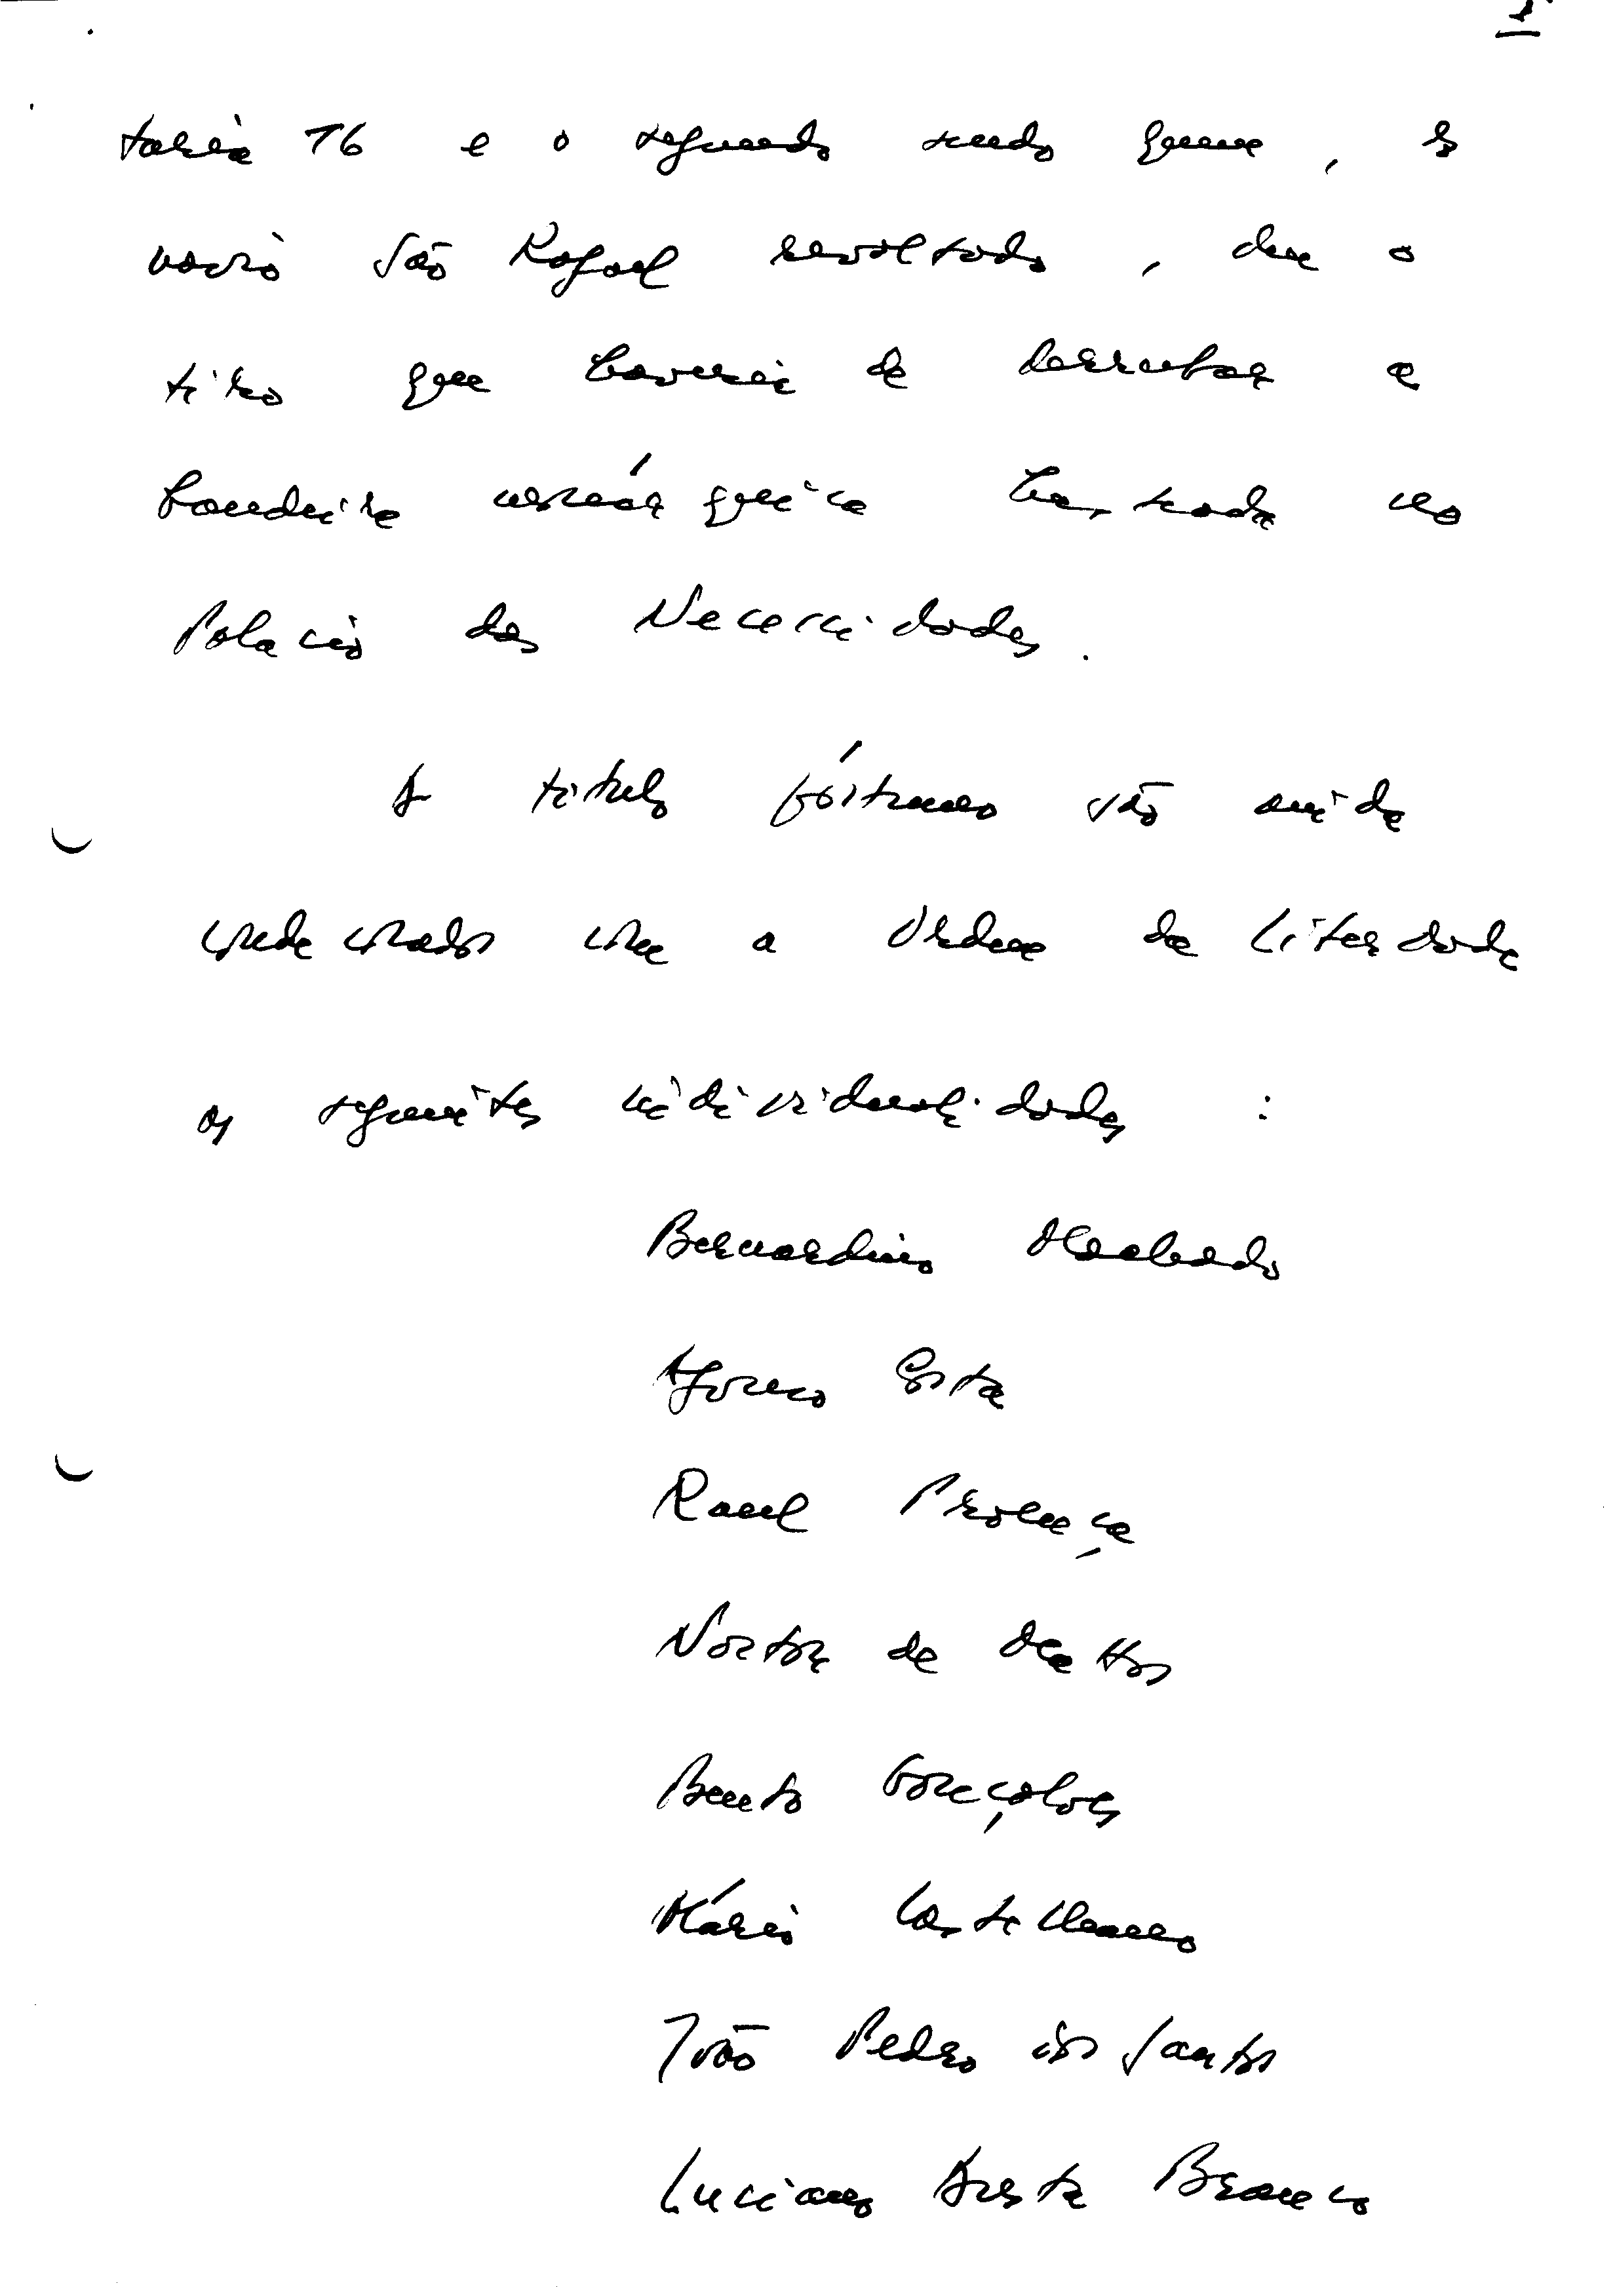 taria 16 e o segundo sendo quem, do
navio São Rafael revoltado, deu o
tiro que haveria de derrubar a
bandeira monárquica hasteada no
Palacio das Necessidades.
A titulo póstumo são ainda
condecorados com a Ordem da Liberdade
as seguintes individualidades:
Bernardino Machado
Afonso Costa
Raul Proença
Norton de Mattos
Bento Gonçalves
Mário Castelhano
João Pedro dos Santos
Luciano Aresta Branco